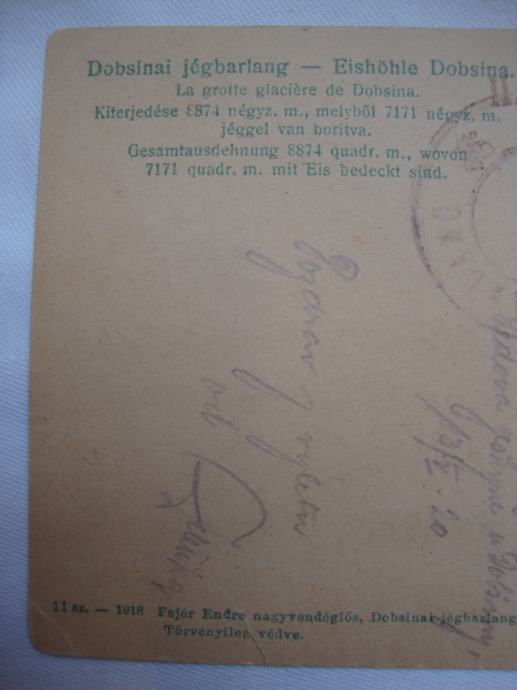 Dobsinai jégbarlang — Eishöhle Dobsina.
La grotte glacière de Dobsina.
Kiterjedése 8874 négyz. m., melyből 7171 négyz. m.
jéggel van boritva.
Gesamtausdehnung 8874 quadr. m., wovon
7171 quadr. m. mit Eis bedeckt sind.
Pozdrav z výletu
od
11 sz. — 1918 Fejér Endre nagyvendéglős, Dobsinai jégbarlang
Törvényileg védve.